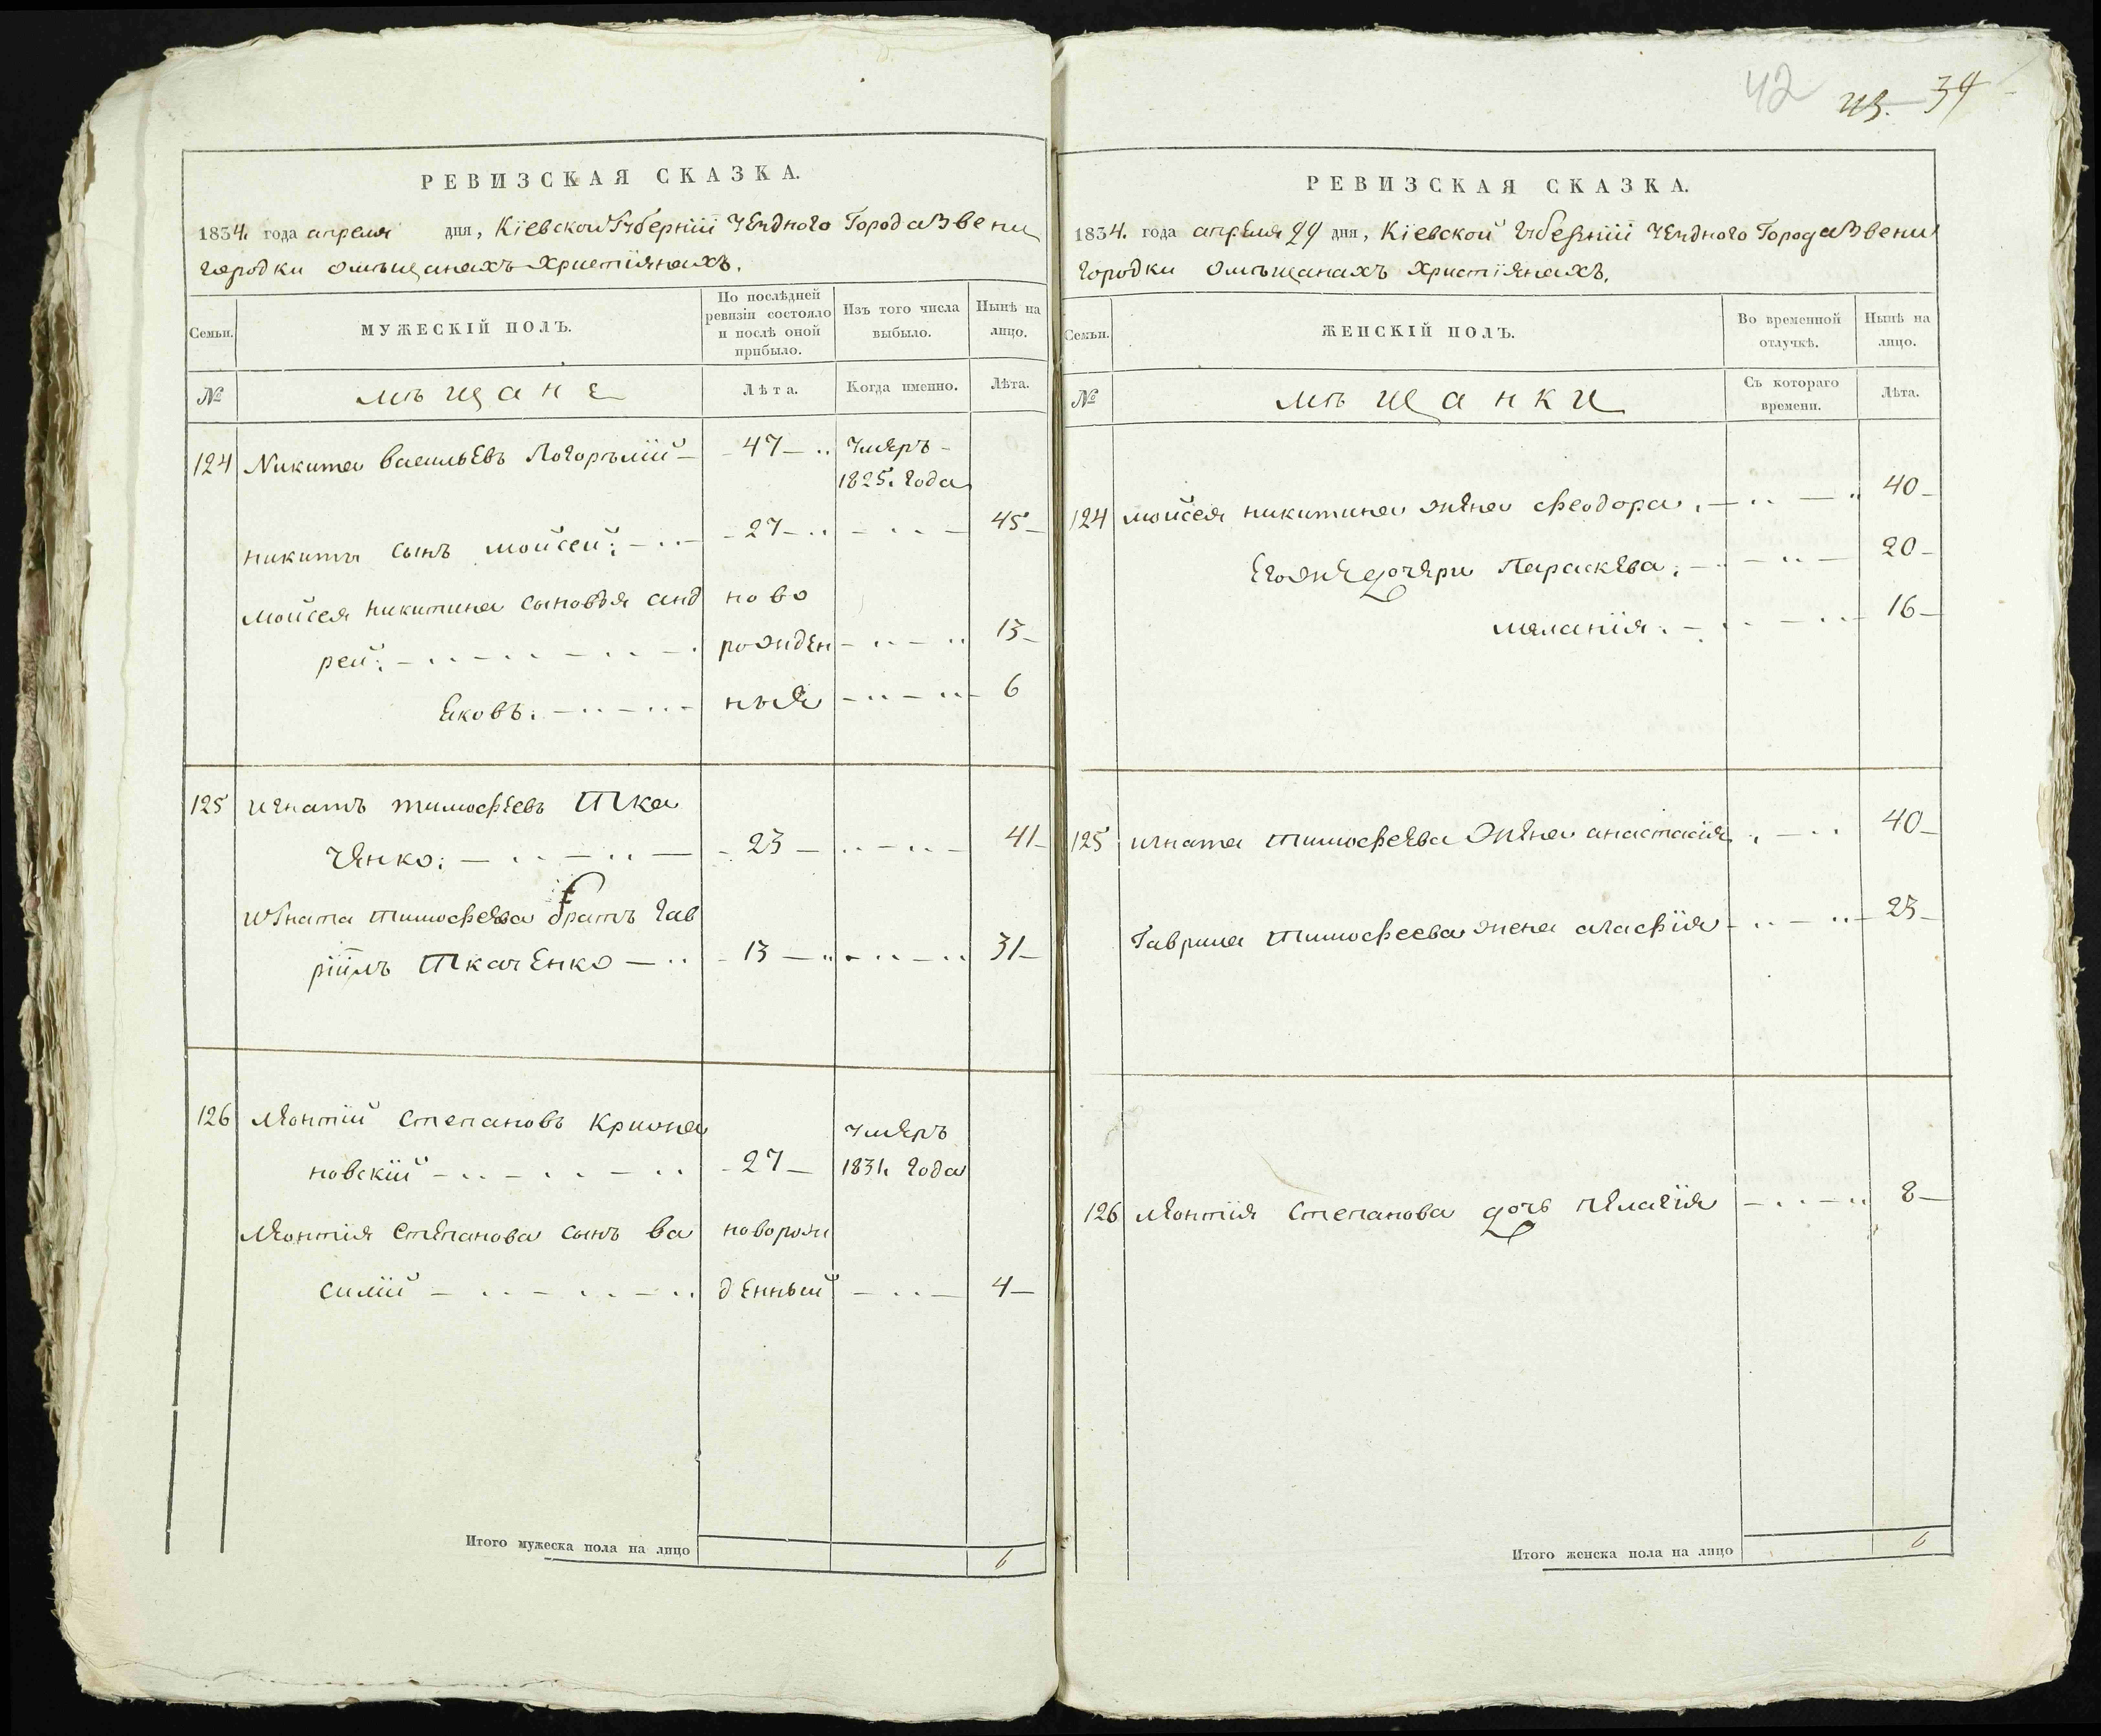 42 43. 34
РЕВИЗСКАЯ СКАЗКА.
1834. года апреля дня, Кіевской Губерніи Уездного Города Звени
городки омѣщанахъ христіянахъ.
Семьи.
МУЖЕСКІЙ ПОЛЪ.
По послѣдней ревизіи состояло и послѣ оной прибыло.
Изъ того числа выбыло.
Нынѣ на лицо.
№ мѣщане Лѣта. Когда именно. Лѣта.
124 Никита васильевъ Погорѣлій 47 умеръ
1825. года
никиты сынъ мойсей: 27 45
мойсея никитина сыновъя анд ново
рей: рожден 13
Яковъ. ныя 6
125 игнатъ тимофеевъ Тка
ченко: 23 41
игната тимофеева братъ гав
ріилъ Ткаченко 13 31
126 Леонтій Степановъ Крижа умеръ
новскій 27 1831. года
Леонтія Степанова сынъ ва новорож
силій денный 4
Итого мужеска пола на лицо 6
РЕВИЗСКАЯ СКАЗКА.
1834. года апреля 29 дня, Кіевской Губерніи Уездного Города Звени
городки омѣщанахъ христіянахъ.
Семьи.
ЖЕНСКІЙ ПОЛЪ.
Во временной отлучкѣ.
Нынѣ на лицо.
№ мѣщанки Съ котораго времени. Лѣта.
124 мойсея никитина жена феодора. 40
Егожедочери Параскева. 20
меланія. 16
125 игната тимофеева жена анастасія. 40
Гаврила тимофеева жена агафія 23
126 Леонтія Степанова дочь пелагія 8
Итого женска пола на лицо 6